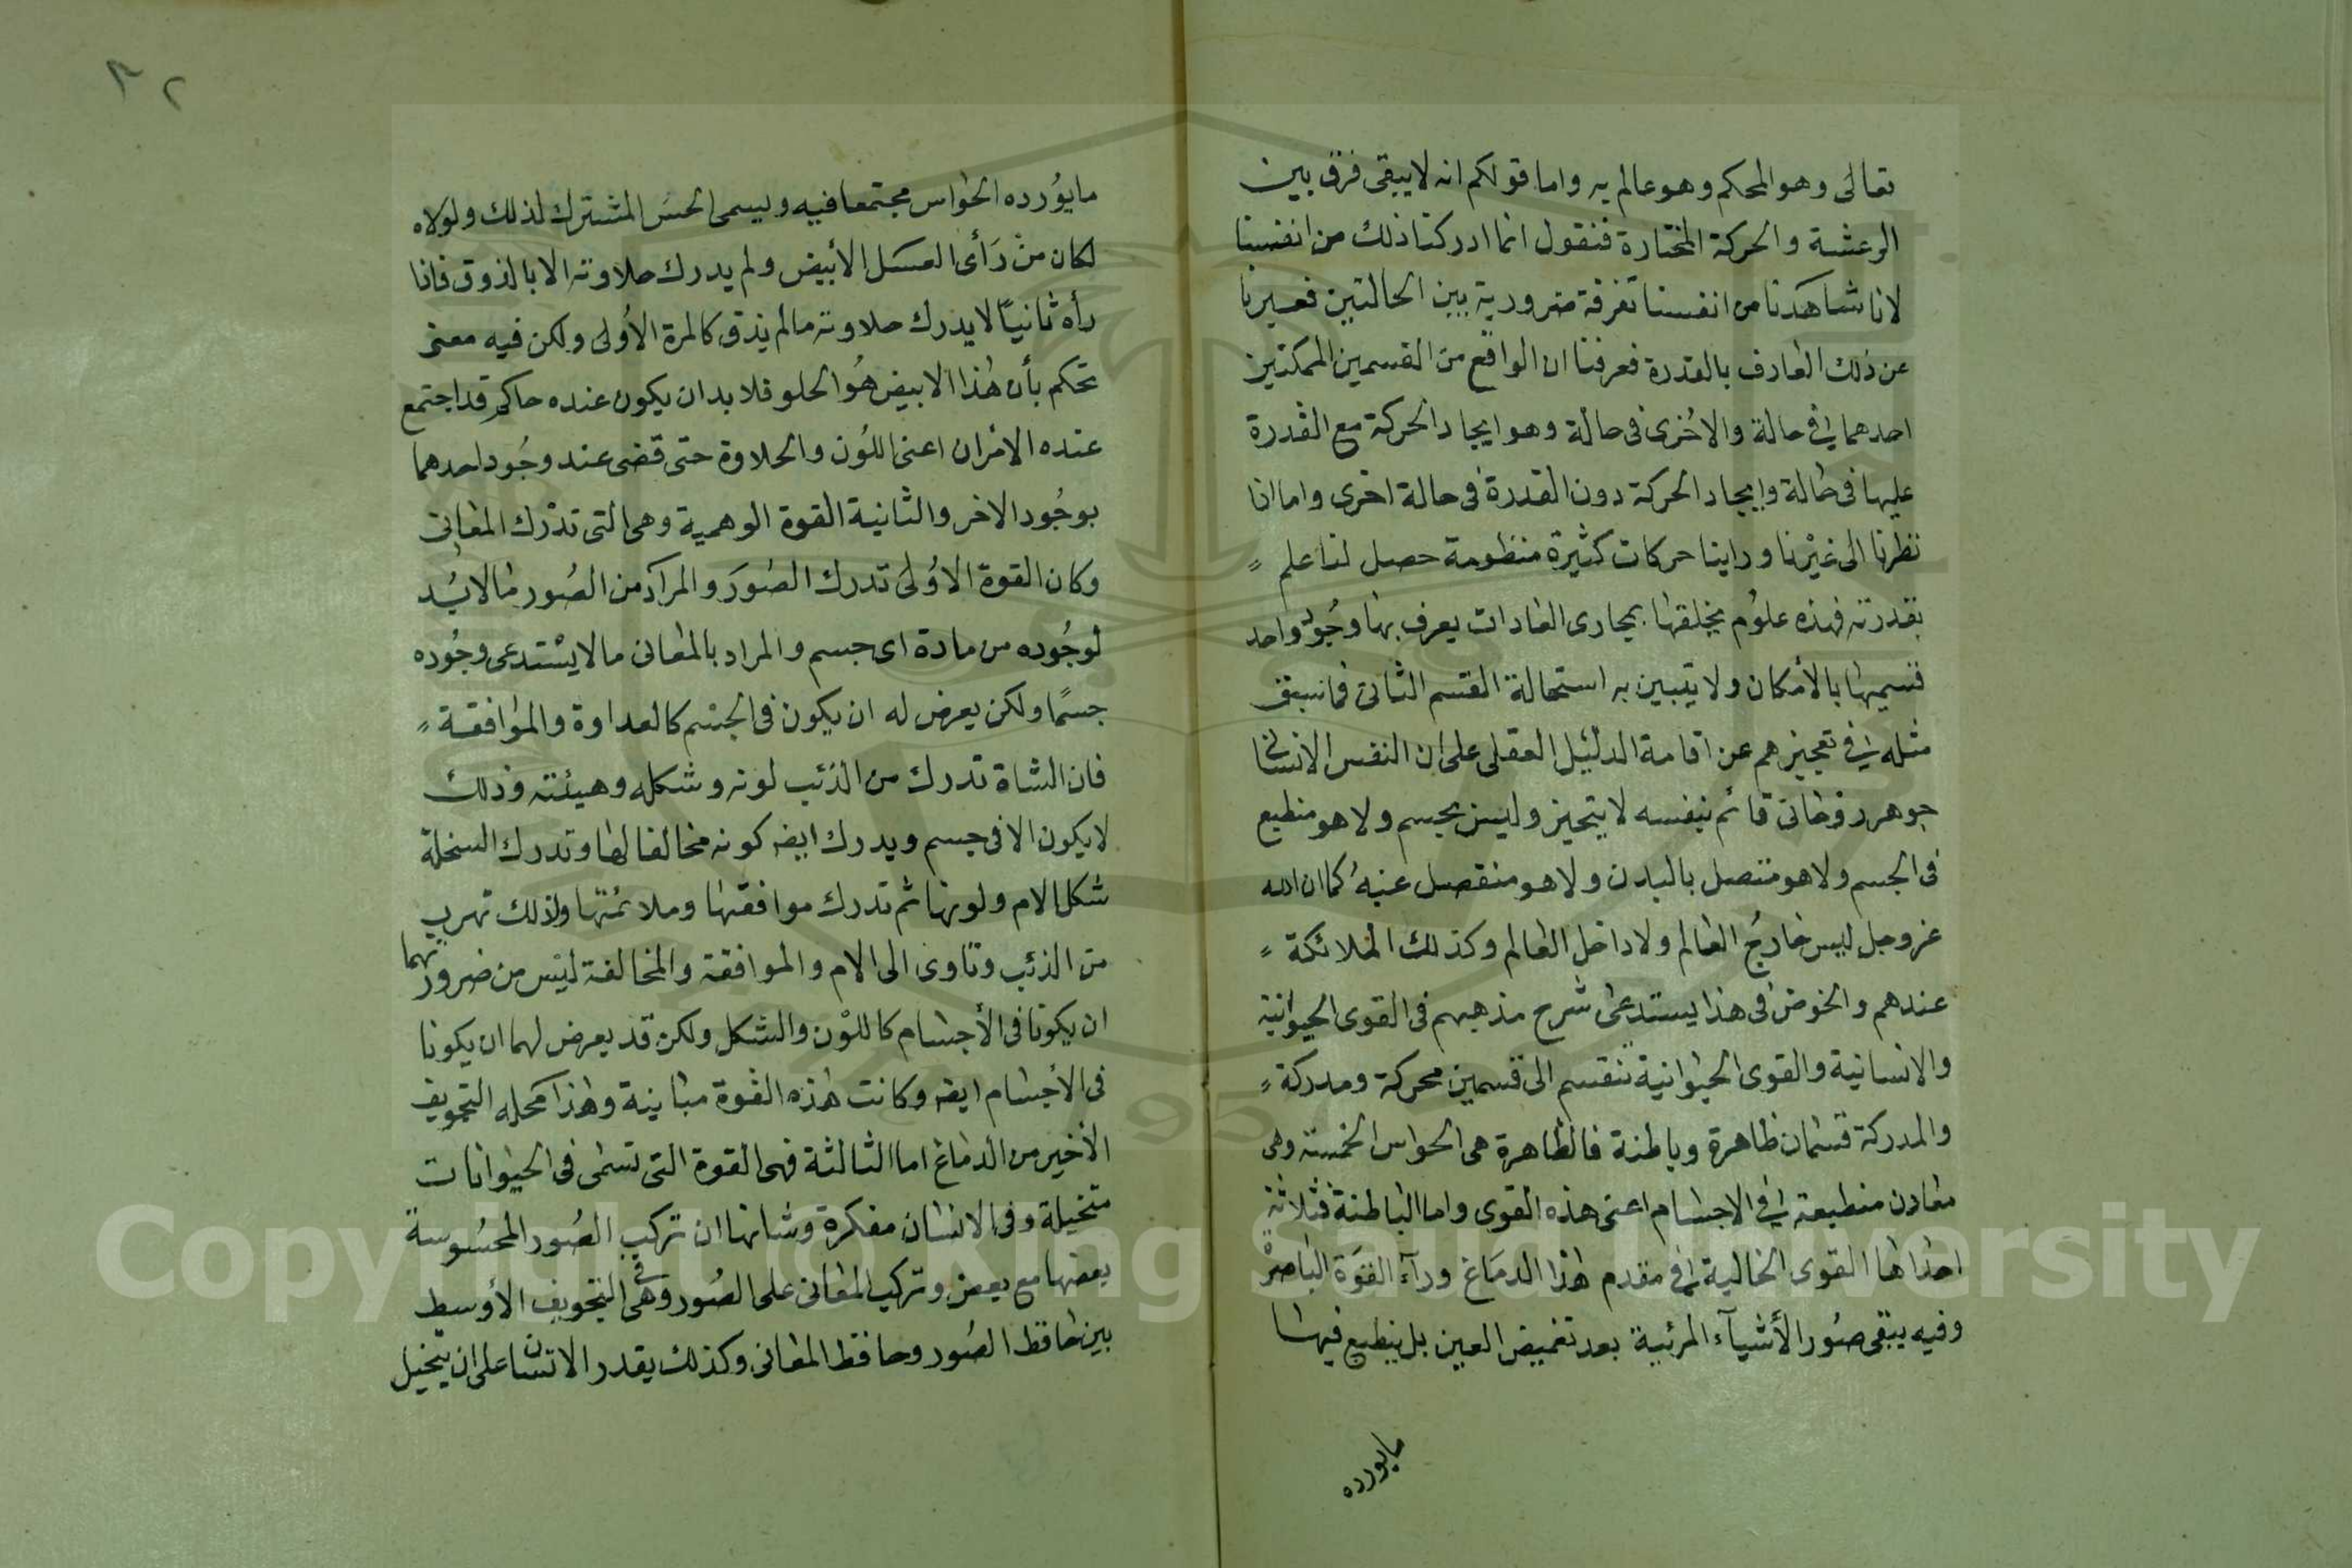 تعالى وهو المحكم وهو عالم به واما قولكم انه لا يبقى فرق بين
الرعشة والحركة المختارة فنقول انما ادركنا ذلك من انفسنا
لانا شاهدنا من انفسنا تفرقة ضرورية بين الحالتين فعبرنا
عن ذلك الفارق بالقدرة فعرفنا ان الواقع من القسمين الممكنين
احدهما في حالة والاخرى في حالة وهو ايجاد الحركة مع القدرة
عليها في حالة وايجاد الحركة دون القدرة في حالة اخرى واما اذا
نظرنا الى غيرنا وراينا حركات كثيرة منظومة حصل لنا علم
بقدرته فهذه علوم يخلقها بمجارى العادات يعرف بها وجود واحد
قسميها بالأمكان ولا يتبين به استحالة القسم الثانى فما سبق
مثله في تعجيزهم عن اقامة الدليل العقلى على ان النفس الانسانى
جوهر روحانى قائم بنفسه لا يتحيز وليس بجسم ولا هو منطبع
فى الجسم ولا هو متصل بالبدن ولا هو منفصل عنه كما ان الله
عز وجل ليس خارج العالم ولا داخل العالم وكذلك الملائكة
عندهم والخوض فى هذا يستدعى شرح مذهبهم فى القوى الحيوانية
والانسانية والقوى الحيوانية تنقسم الى قسمين محركة ومدركة
والمدركة قسمان ظاهرة وباطنة فالظاهرة هى الحواس الخمسة وهى
معادن منطبعة في الاجسام اعنى هذه القوى واما الباطنة فثلاثة
احداها القوى الخالية في مقدم هذا الدماغ ورآء القوة الباصرة
وفيه يبقى صور الأشيآء المرئية بعد تغميض العين بل ينطبع فيها
مايورده
٣٢
ما يورده الحواس مجتمعا فيه ويسمى الحس المشترك لذلك ولولاه
لكان من رأى العسل الأبيض ولم يدرك حلاوته الا بالذوق فاذا
رأه ثانيًا لا يدرك حلاوته ما لم يذق كالمرة الأولى ولكن فيه معنى
تحكم بأن هذا الابيض هو الحلو فلا بد ان يكون عنده حاكم قد اجتمع
عنده الامران اعنى اللون والحلاوة حتى قضى عند وجود احدهما
بوجود الاخر والثانية القوة الوهمية وهى التى تدرك المعانى
وكان القوة الاولى تدرك الصور والمراد من الصور ما لابد
لوجوده من مادة اى جسم والمراد بالمعانى ما لا يستدعى وجوده
جسمًا ولكن يعرض له ان يكون فى الجسم كالعداوة والموافقة
فان الشاة تدرك من الذئب لونه وشكله وهيئته وذلك
لا يكون الا فى جسم ويدرك ايضه كونه مخالفا لها وتدرك السخلة
شكل الام ولونها ثم تدرك موافقتها وملائمتها ولذلك تهرب
من الذئب وتاوى الى الام والموافقة والمخالفة ليس من ضرورتهما
ان يكونا فى الأجسام كاللون والشكل ولكن قد يعرض لهما ان يكونا
فى الاجسام ايضه وكانت هذه القوة مباينة وهذا محله التجويف
الأخير من الدماغ اما الثالثة فهى القوة التى تسمى فى الحيوانات
متخيلة وفى الانسان مفكرة وشانها ان تركب الصور المحسوسة
بعضها مع بعض وتركب المعانى على الصور وهى فى التجويف الأوسط
بين حافظ الصور وحافظ المعانى وكذلك يقدر الانسان على ان يتخيل
Copyright © King Saud University